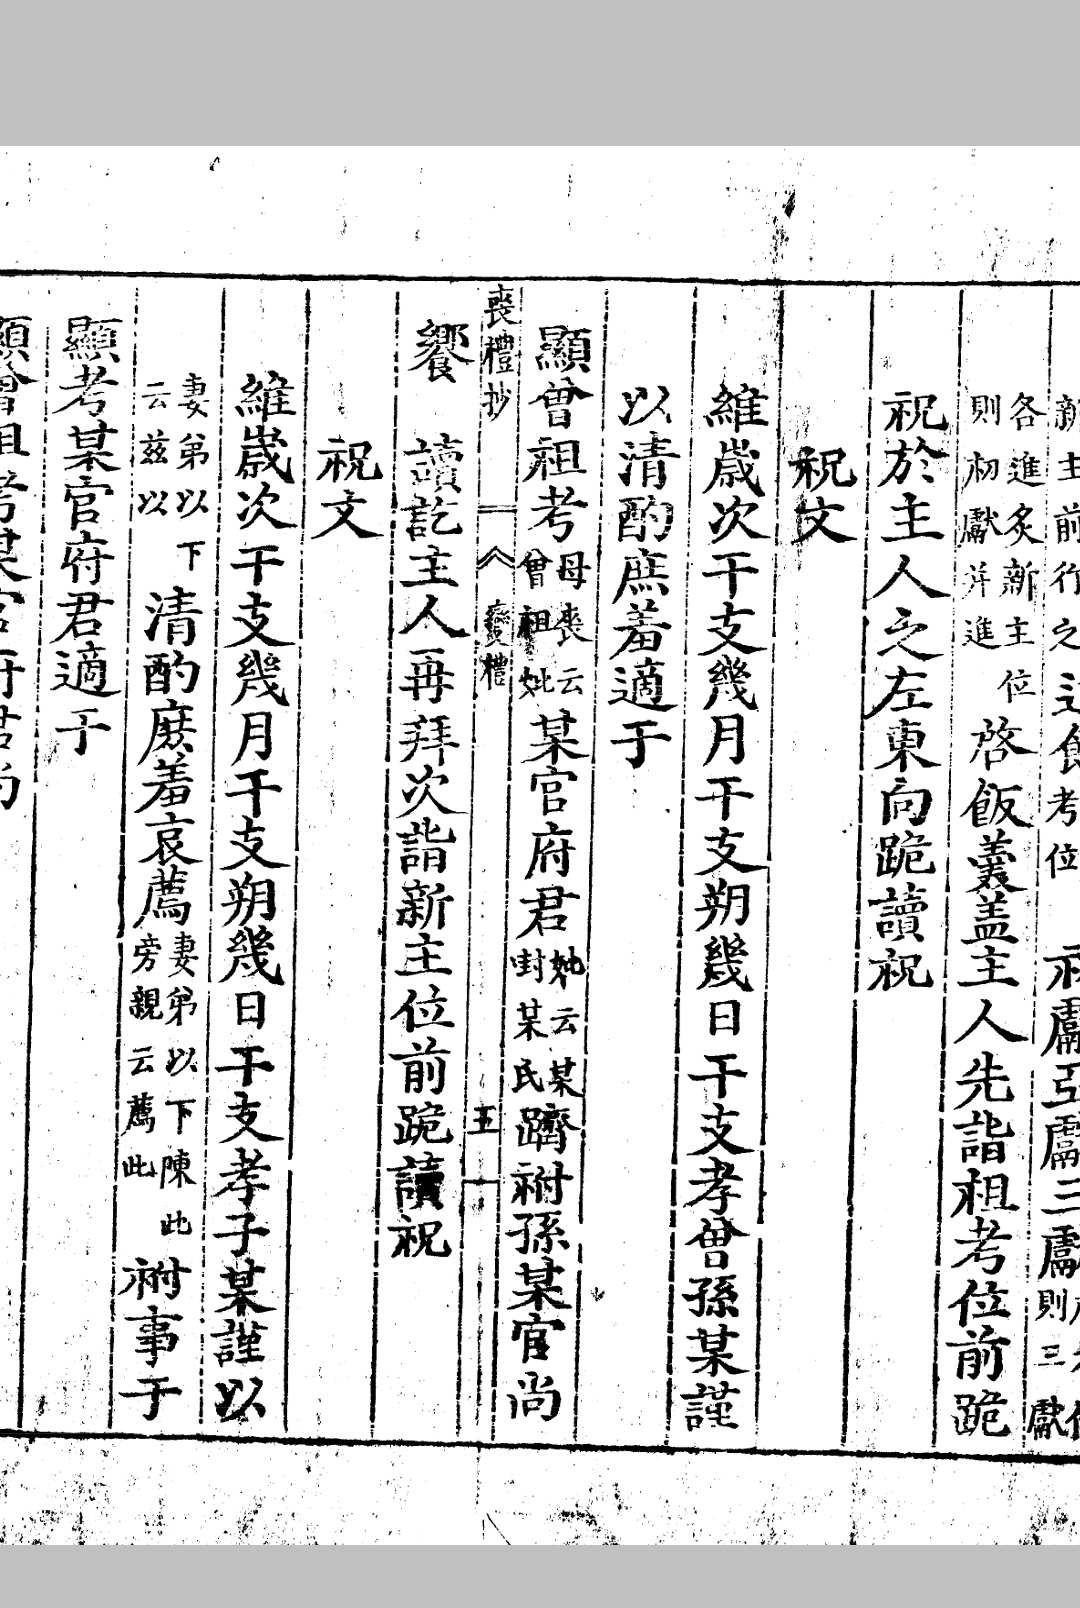 新主前行之 考位 獻亞獻三獻 則三獻
各進炙新主位則初獻并進啓飯羹盖主人先詣祖考位前跪
祝於主人之左東向跪讀祝
祝文
維歲次干支幾月干支朔幾日干支孝曾孫某謹
以清酌庶羞適于
顯曾祖考母喪云曾祖妣某官府君妣云某封某氏躋祔孫某官尚
喪禮抄 二 變禮 五十
饗 讀訖主人再拜次詣新主位前跪讀祝
祝文
維歲次干支幾月干支朔幾日干支孝子某謹以
妻弟以下云兹以清酌庶羞哀薦妻弟以下陳此旁親云薦此祔事于
顯考某官府君適于
顯曾祖考某官府君尚